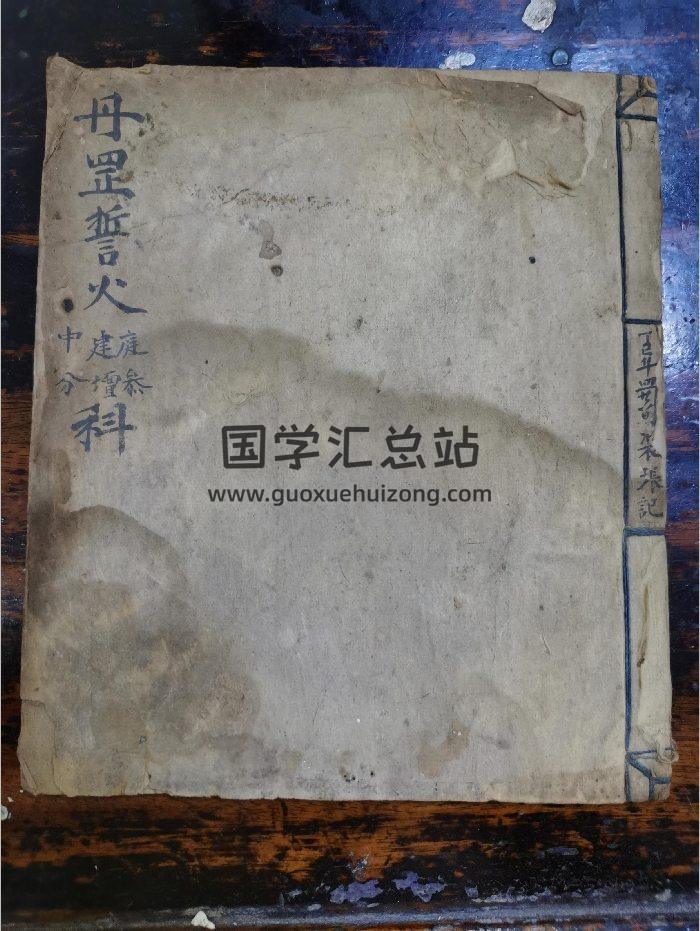 丁巳年張記
丹罡誓火
庭参
建壇
中分
科
国学汇总站
www.guoxuehuizong.com